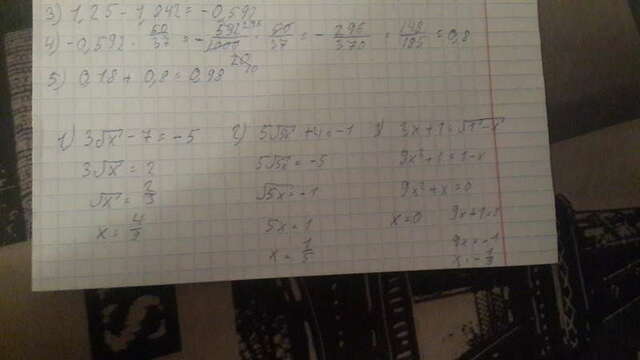 3) 1,25 - 1,842 = -0,592
4) -0,592 · 50/37 = - 592/1000 · 50/37 = - 296/370 = 148/185 = 0,8
5) 0,18 + 0,8 = 0,98
1) 3√x - 7 = -5
3√x = 2
√x = 2/3
x = 4/9
2) 5√5x + 4 = -1
5√5x = -5
√5x = -1
5x = 1
x = 1/5
3) 3x + 1 = √1-x
9x² + 1 = 1 - x
9x² + x = 0
x = 0 9x + 1 = 0
9x = -1
x = -1/9